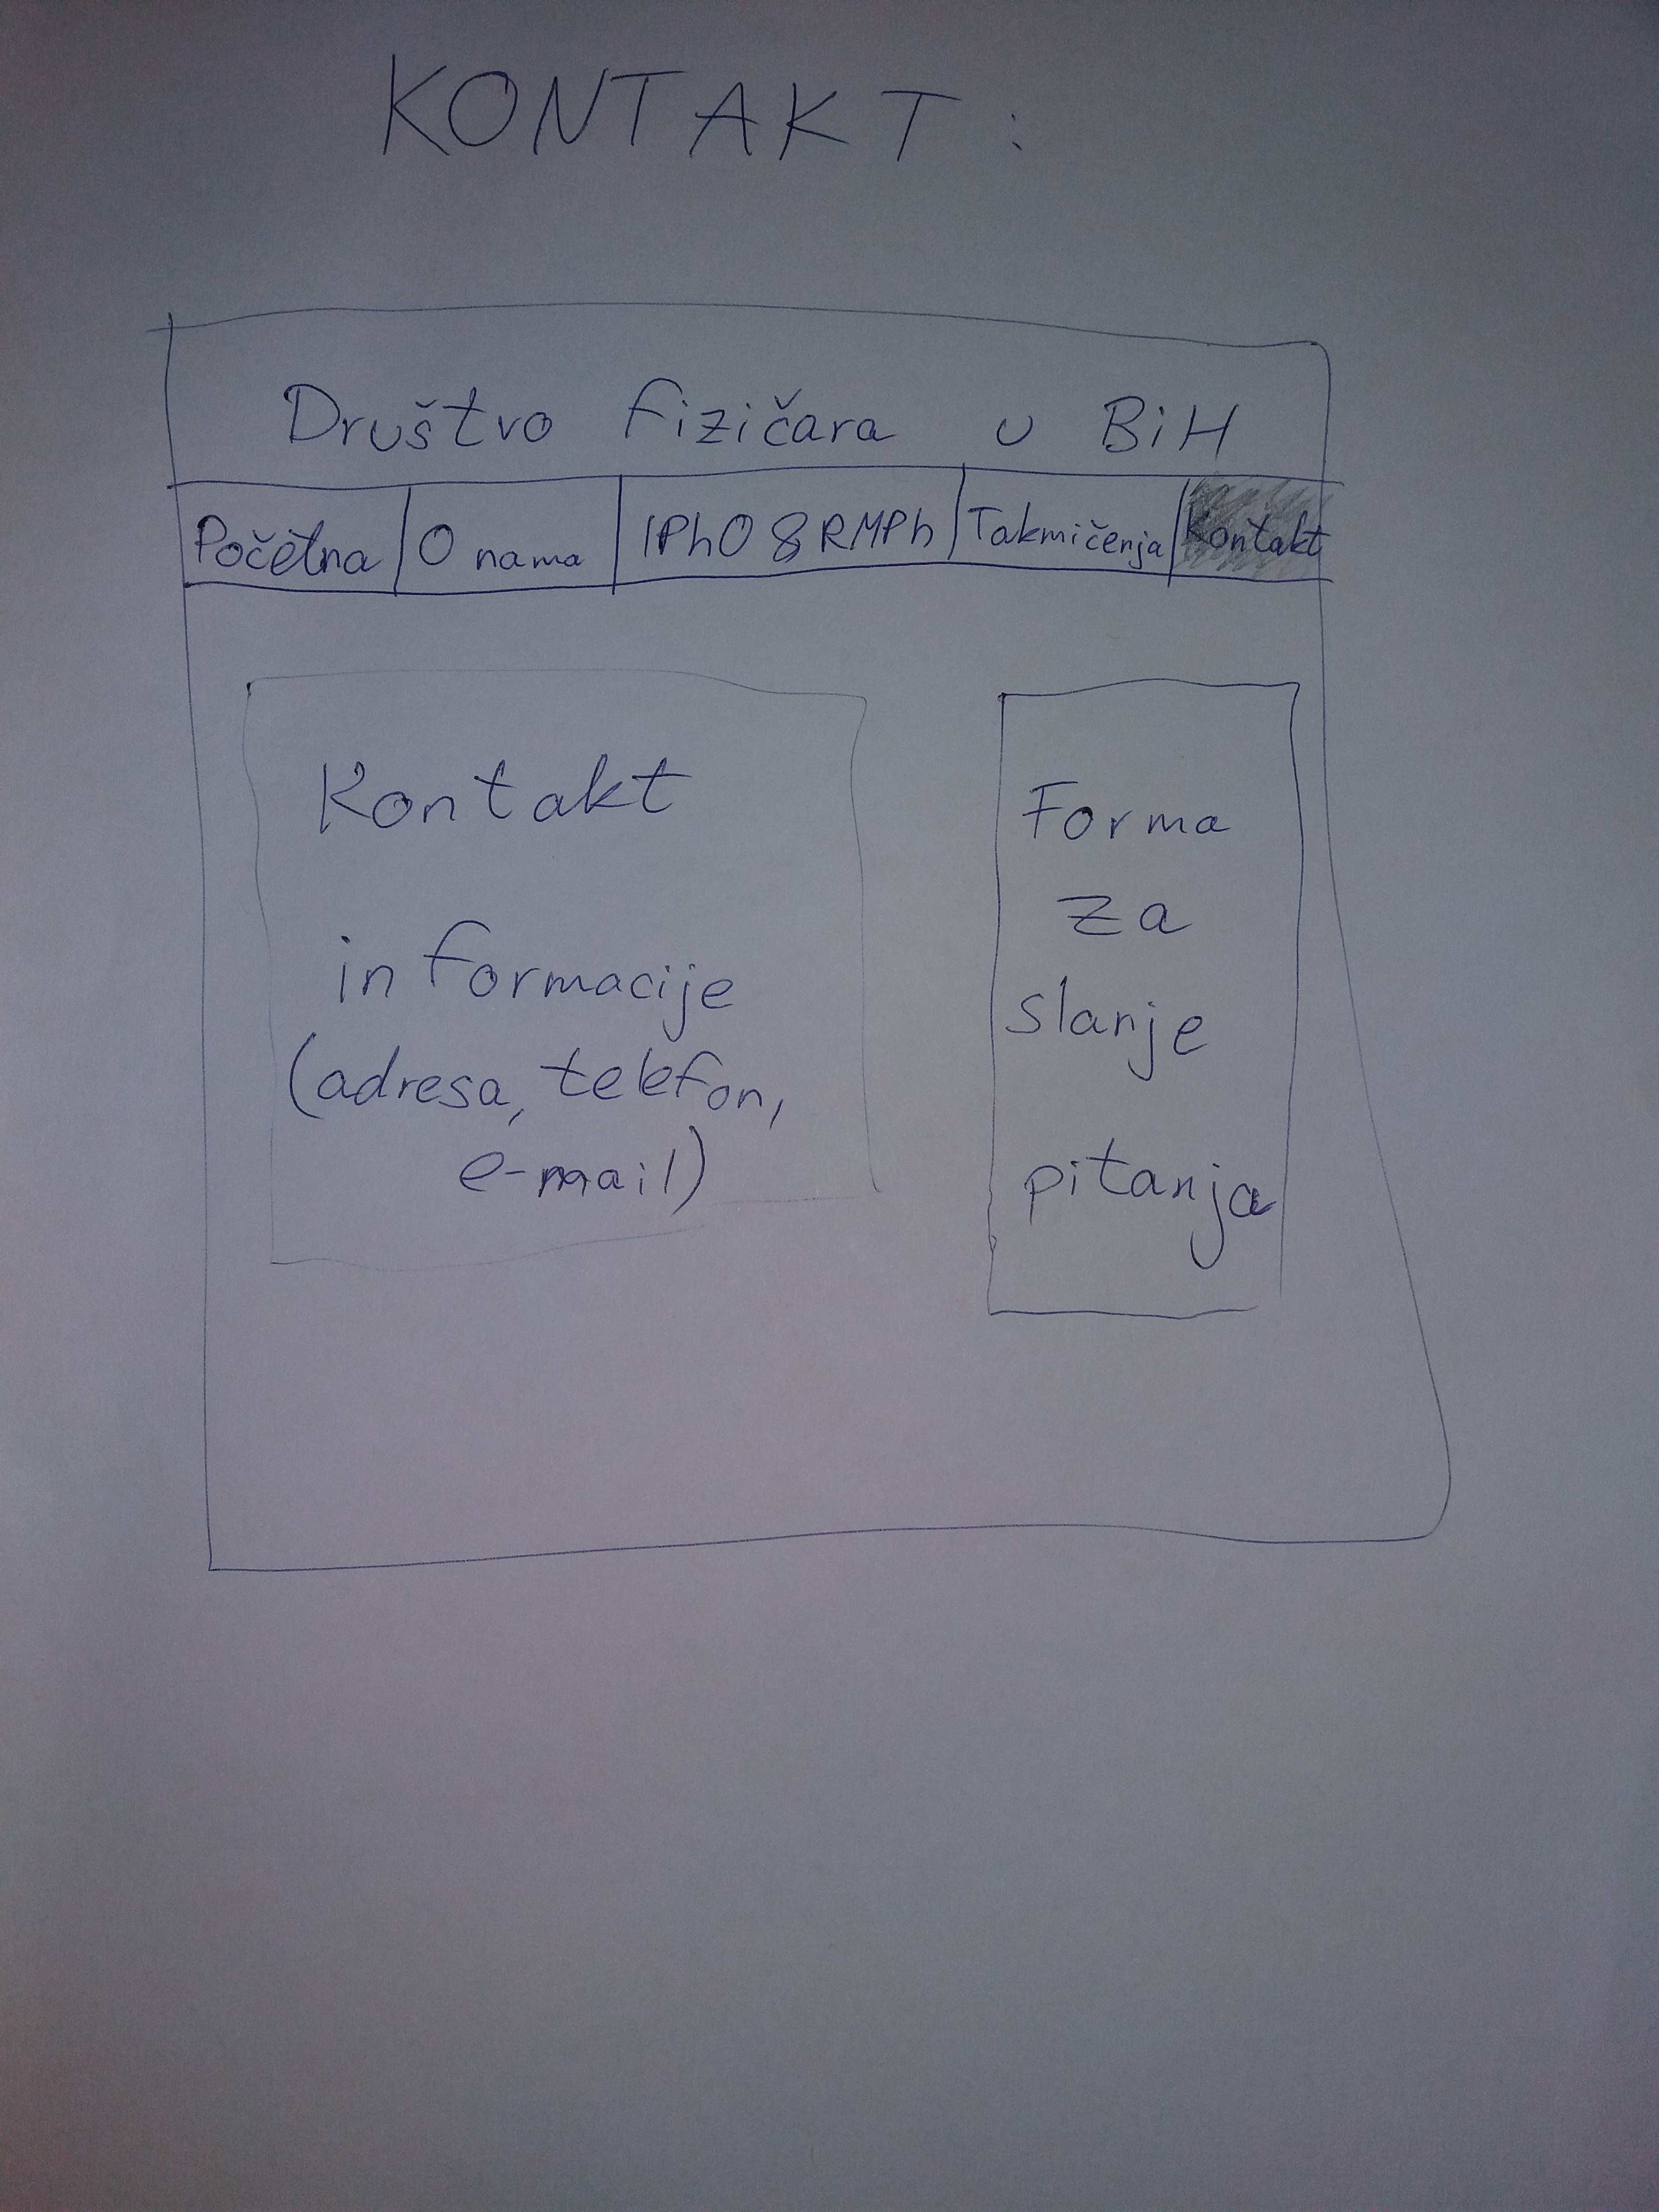 KONTAKT:
Društvo fizičara u BiH
Početna O nama IPhO & RMPh Takmičenja Kontakt
Kontakt
informacije
(adresa, telefon,
e-mail)
Forma
za
slanje
pitanja